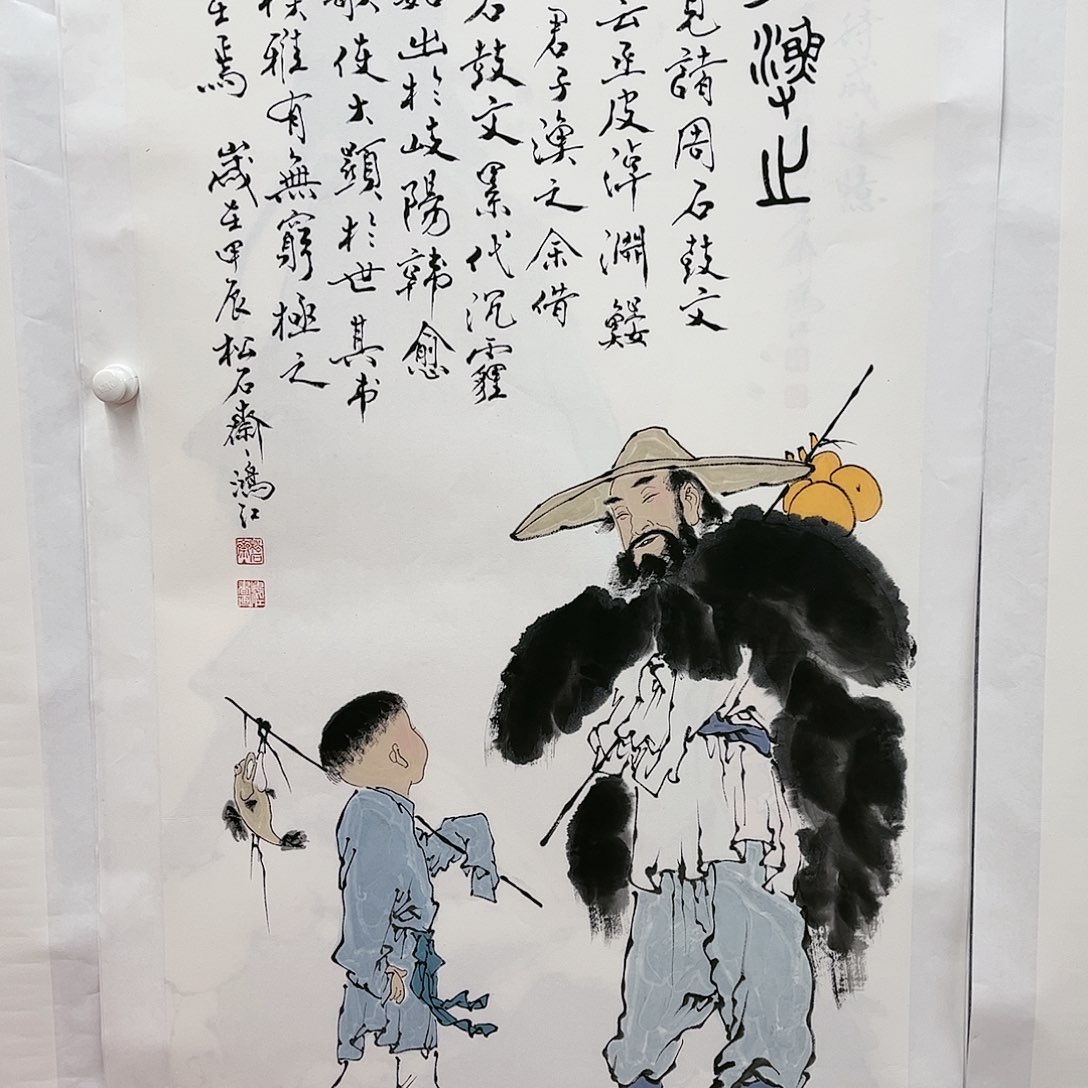 漁之
見諸周石鼓文
云丞皮淖淵鰋
君子漁之余借
石鼓文累代沉霾
始出於岐陽韓愈
歌使大顯於世其书
樸雅有無窮極之
焉 歲在甲辰松石齋鴻江